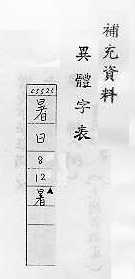 補充資料
異體字表
05525
暑
日
8
12
暑▲